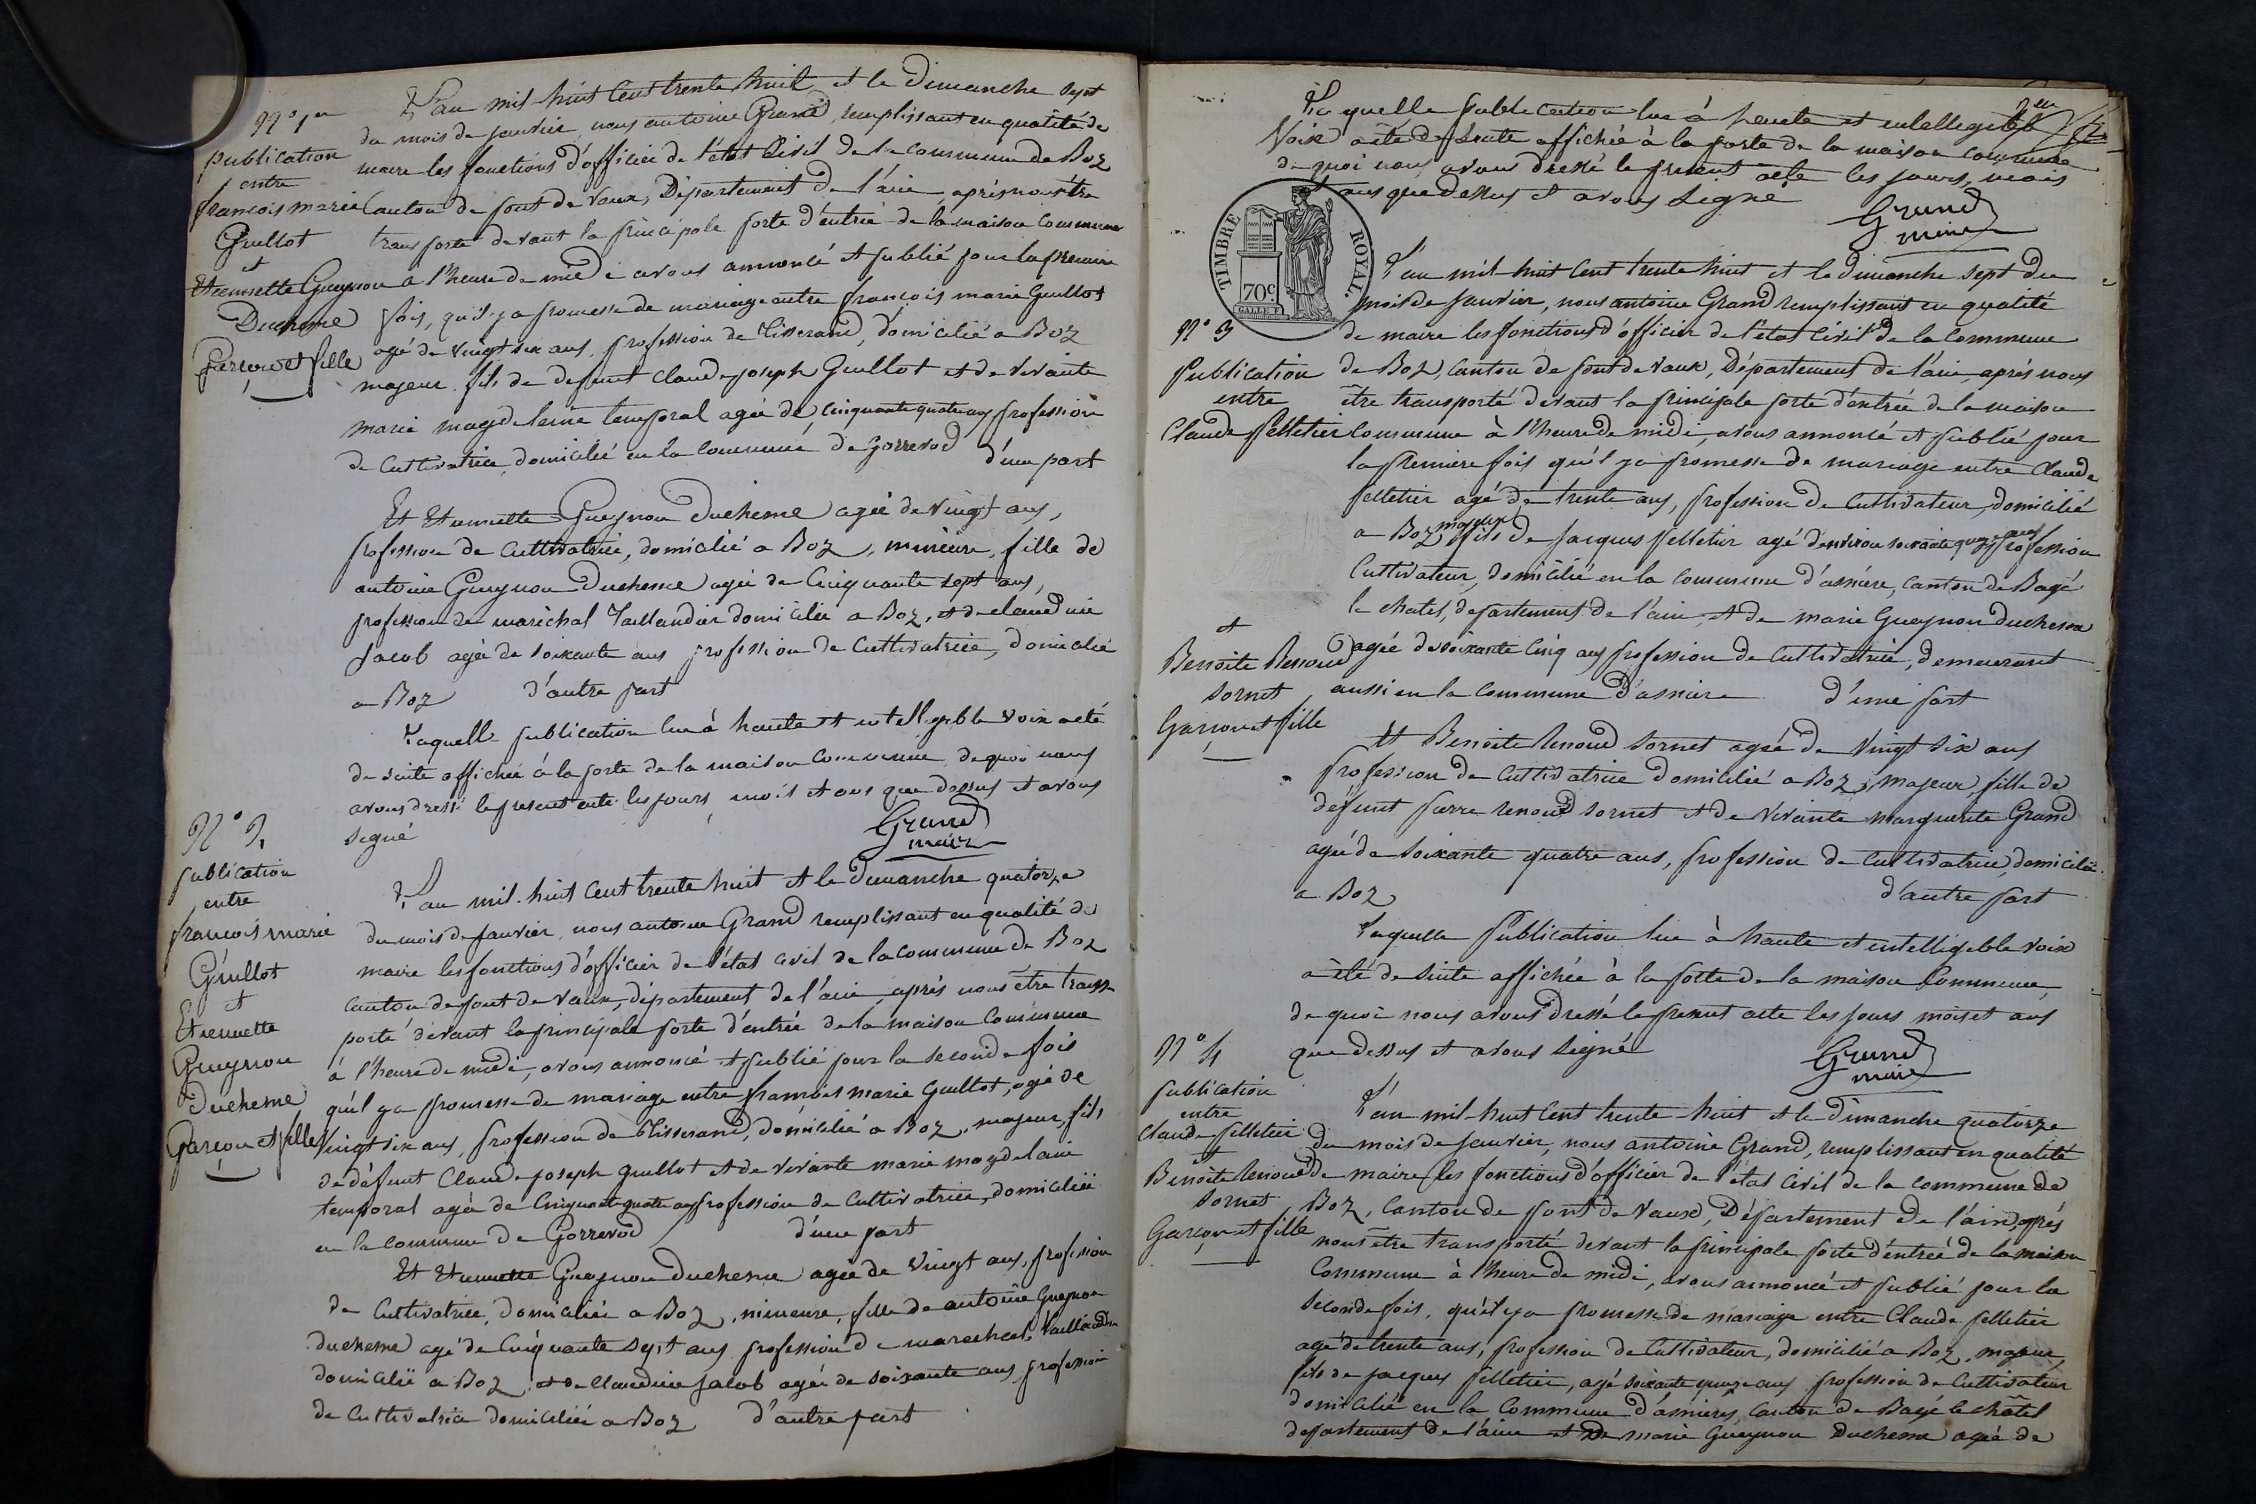 N° 1er
publication
entre
françois marie
Guillot
et
Etiennette Gueynou
Duchesne
Garçon et fille
L'an mil huit cent trente huit et le dimanche sept
du mois de janvier, nous antoine Grand, remplissant en qualité de
maire les fonctions d'officier de l'état Civil de la commune de Boz
Canton de pont de Vaux, Département de l'ain, aprés nous être
transporté devant la principale porte d'entrée de la maison Commune
a l'heure de midi avons annoncé et publié pour la premiere
fois, qu'il ya promesse de mariage entre françois marie Guillot
agé de vingt six ans, profession de tisserand, domicilié a Boz
majeur fils de defunt claude joseph Guillot et de vivante
marie magdeleine temporal agée de cinquante quatre ans profession
de Cultivatrice, domicilié en la commune de gorrevod d'une part
Et Etiennette Gueynou duchesne agée de vingt ans,
profession de Cultivatrice, domicilié a Boz, mineure, fille de
antoine Gueynou Duchesne agée de Cinquante sept ans,
profession de maréchal Taillandier domicilié a Boz, et de claudine
Jacob agée de soixante ans profession de Cultivatrice, domicilié
a Boz d'autre part
Laquelle publication lue à haute et intelligeble voix a eté
de suite affichée à la porte de la maison Commune, de quoi nous
avons dressé le present acte les jours, mois et ans que dessus et avons
signé
Grand
maire
N° 2
publication
entre
françois marie
Guillot
et
Etiennette
Gueynou
duchesne
Garçon et fille
L'an mil huit Cent trente huit et le dimanche quatorze
du mois de Janvier, nous antoine Grand remplissant en qualité de
maire les fonctions d'officier de l'état civil de la commune de Boz
Canton de pont de Vaux, département de l'ain, aprés nous être trans
porté devant la principale porte d'entrée de la maison Commune
à l'heure de midi, avons annoncé et publié pour la seconde fois
qu'il ya promesse de mariage entre françois marie Guillot, agé de
Vingt six ans, profession de tisserand, domicilié a Boz, majeur fils
de défunt Claude joseph guillot et de vivante marie magdelaine
temporal agée de Cinquante quatre ans profession de cultivatrice, domiciliée
en la commune de Gorrevod d'une part
Et Etiennette Gueynou duchesne agée de Vingt ans, profession
de Cultivatrice, domiciliée a Boz, mineure, fille de antoine Gueynou
duchesne agé de Cinquante sept ans profession de marechal Taillandier
domicilié a Boz, et de claudine jacob agée de soixante ans, profession
de Cultivatrice domiciliée a Boz d'autre part
Laquelle publication lue à haute et intelligeble
Voix a été de suite affichée à la porte de la maison commune
de quoi nous avons dressé le present acte les jours, mois
et ans que dessus et avons signé
Grand
maire
TIMBRE ROYAL
70c.
N° 3
Publication
entre
Claude pelletier
et
Benoite Renoud
sornet
Garçon et fille
L'an mil huit Cent trente huit et le dimanche sept du
mois de Janvier, nous antoine Grand remplissant en qualité
de maire les fonctions d'officier de l'état Civil de la Commune
de Boz, Canton de pont de vaux, Département de l'ain, aprés nous
être transporté devant la principale porte d'entrée de la maison
Commune à l'heure de midi, avons annoncé et publié pour
la premiere fois qu'il ya promesse de mariage entre Claude
pelletier agé de trente ans, profession de Cultivateur, domicilié
a Boz, majeur fils de Jacques pelletier agé d'environ soixante quinze ans profession
Cultivateur, domicilié en la Commune d'asniere, Canton de Bagé
le chatel, departement de l'ain, et de marie Gueynou duchesne
agée de soixante Cinq ans profession de Cultivatrice, demeurant
aussi en la Commune d'asniere d'une part
Et Benoite Renoud sornet agée de Vingt Six ans
profession de Cultivatrice domicilié a Boz, majeur, fille de
défunt pierre renoud sornet et de Vivante marguerite Grand
agée de Soixante quatre ans, profession de Cultivatrice, domiciliée
a Boz d'autre part
Laquelle Publication lue à haute et intelligeble voix
a été de suite affichée à la porte de la maison Commune,
de quoi nous avons dressé le present acte les jours mois et ans
que dessus et avons signé
Grand
maire
N° 4
publication
entre
Claude pelletier
et
Benoite Renoud
Sornet
Garçon et fille
L'an mil huit Cent trente huit et le dimanche quatorze
du mois de Janvier, nous antoine Grand, remplissant en qualité
de maire les fonctions d'officier de l'état Civil de la commune de
Boz, Canton de pont de Vaux, Département de l'ain, aprés
nous être transporté devant la principale porte d'entrée de la maison
Commune à l'heure de midi, avons annoncé et publié pour la
Seconde fois, qu'il ya promesse de mariage entre Claude pelletier
agé de trente ans, profession de Cultivateur, domicilié a Boz, majeur,
fils de jacques pelletier, agé soixante quinze ans profession de Cultivateur
domicilié en la Commune d'asnieres, Canton de Bagé le châtel
departement de l'ain et de marie Gueynou Duchesne agée de